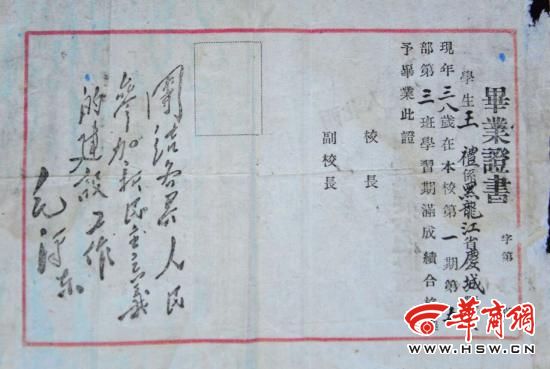 畢業證書
字第
學生王禮係黑龍江省慶城
現年三八歲在本校第一期第
部第三班學習期滿成績合格
予畢業此證
校長
副校長
團結各界人民
參加新民主主義
的建設工作
毛澤東
華商網
WWW.HSW.CN